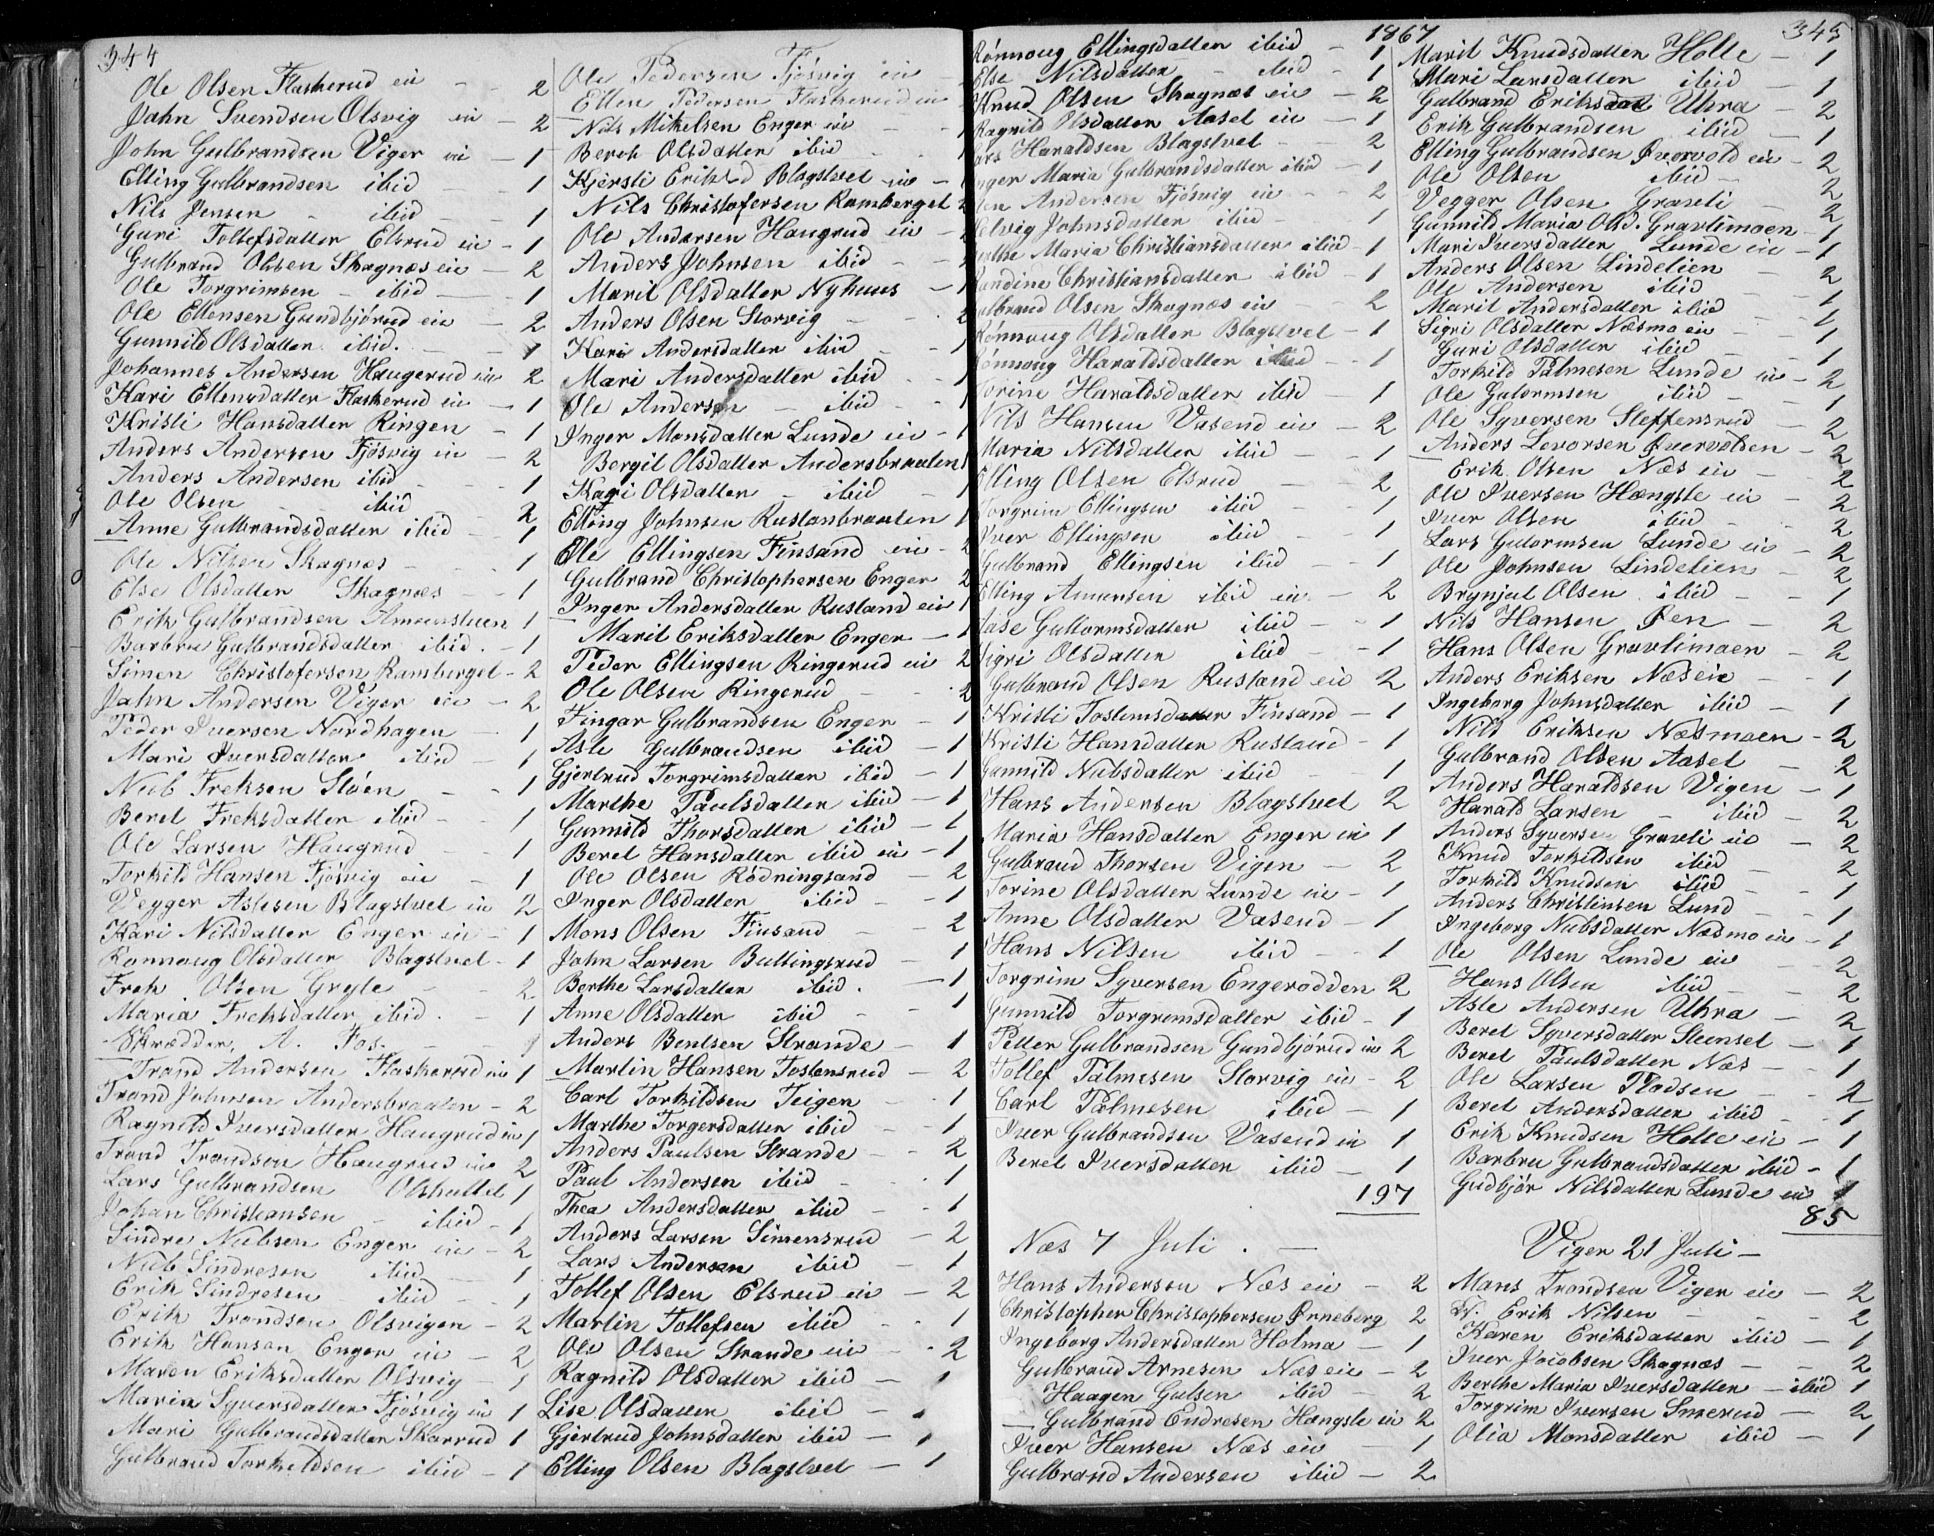 344
Ole Olsen Flaskerud eie - - 2
Jahn Svendsen Olsvig eie - 2
John Gulbrandsen Viger eie - 1
Elling Gulbrandsen ibid - - 1
Nils Jensen - ibid - - 1
Guri Tollefsdatter Elsrud eie - 1
Gulbrand Olsen Skagnæs eie - 2
Ole Torgrimsen - ibid - 1
Ole Ellensen Gundbjørud eie - 2
Gunnild Olsdatter ibid. - - 1
Johannes Andersen Haugerud eie 2
Kari Ellensdatter Flaskerud eie - 1
Kristi Hansdatter Ringen - 1
Anders Andersen Fjøsvig eie - 2
Anders Andersen ibid - - 1
Ole Olsen ibid - 2
Anne Gulbrandsdatter ibid - 1
Ole Nilsen Skagnæs - - 1
Else Olsdatter Skagnæs - - 1
Erik Gulbrandsen 1
Barbru Gulbrandsdatter ibid. - 1
Simen Christofersen Ramberget - 2
Jahn Andersen Viger eie - 2
Peder Iversen Nordhagen - 1
Mari Iversdatter ibid - 1
Nub Freksen Støen - - 1
Beret Freksdatter ibid - - 1
Ole Larsen Haugrud - - 1
Torkild Hansen Fjøsvig eie - 1
Vegger Aslesen Blagstvet eie 2
Kari Nilsdatter Enger eie - 1
Rønnoug Olsdatter Blagstvet - 1
Frek Olsen Gryte - - 2
Maria Freksdatter ibid. - 1
Skrædder A. Fos. - - 1
Trond Andersen Flaskerud eie 1
Trond Johnsen Andersbraaten - 2
Ragnild Iversdatter Haugrud eie 1
Trond Trondsen Haugrud eie 2
Lars Gulbrandsen 1
Johan Christiansen - ibid - 1
Sindre Nubsen Enger eie - 2
Nub Sindresen ibid - 1
Erik Sindresen - ibid - 1
Erik Trondsen Olsvigen - 2
Erik Hansen Enger eie - 2
Maren Eriksdatter Olsvig - 1
Maria Syversdatter Fjøsvig eie 1
Mari Gulbrandsdatter Skarrud 1
Gulbrand Torkildsen ibid - 1
Ole Pedersen Fjøsvig eie -
Ellen Pedersen Flaskerud eie
Nils Mikelsen Enger eie - - 1
Beret Olsdatter ibid - - 1
Kjersti Eriksd Blagstvet eie -
Nils Christofersen Ramberget 2
Ole Andersen Haugrud eie - 2
Anders Johnsen ibid -
Marit Olsdatter Nyhuus - 1
Anders Olsen Storvig - - 2
Kari Andersdatter ibid - 1
Mari Andersdatter ibid - 1
Ole Andersen - ibid - - 1
Inger Monsdatter Lunde eie - 1
Bergit Olsdatter Andersbraaten 1
Kari Olsdatter - ibid - 1
Elling Johnsen Ruslanbraaten 1
Ole Ellingsen Finsand eie - 2
Gulbrand Christophersen Enger 2
Inger Andersdatter Rusland eie 1
Marit Eriksdatter Enger - 1
Peder Ellingsen Ringerud eie 2
Ole Olsen Ringerud - - 2
Fingar Gulbrandsen Enger - 1
Asle Gulbrandsen ibid - 1
Gjertrud Torgrimsdatter ibid - 1
Marthe Paulsdatter ibid - 1
Gunnild Thorsdatter ibid - 1
Beret Hansdatter ibid eie - 1
Ole Olsen Rødningsand - 2
Inger Olsdatter ibid - 1
Mons Olsen Finsand - - 2
John Larsen Bullingsrud - 1
Berthe Larsdatter ibid. - 1
Anne Olsdatter ibid - - 1
Anders Bentsen Strande - 1
Martin Hansen Tostensrud - 2
Carl Torkildsen Teigen - - 1
Marthe Torgersdatter ibid - 1
Anders Paulsen Strande - - 2
Paul Andersen ibid - - 1
Thea Andersdatter ibid - - 1
Anders Larsen Simensrud - 2
Lars Andersen ibid - 1
Tollef Olsen Elsrud eie - 2
Martin Tollefsen ibid - - 1
Ole Olsen Strande eie - - 2
Ragnild Olsdatter ibid - 1
Lise Olsdatter ibid - 1
Gjertrud Johnsdatter ibid - 1
Elling Olsen Blagstvet - 1
1867
Rønnoug Ellingsdatter ibid - 1
Else Nilsdatter - ibid - 1
Knud Olsen Skagnæs eie - 2
Ragnild Olsdatter Aaset eie - 1
Lars Haraldsen Blagstvet - - 2
Inger Maria Gulbrandsdatter ibid - 1
Andersen Fjøsvig eie - - 2
Helvig Johnsdatter ibid - - 1
Maria Christiansdatter ibid - 1
Christiansdatter ibid - 1
Gulbrand Olsen Skagnæs eie - 2
Rønnoug Olsdatter Blagstvet - 1
Rønnoug Haraldsdatter ibid - 1
Torine Haraldsdatter ibid - 1
Nils Hansen Vasend eie - 2
Maria Nilsdatter ibid - - 1
Elling Olsen Elsrud - 2
Torgrim Ellingsen ibid - - 1
Iver Ellingsen ibid - - 1
Gulbrand Ellingsen ibid - - 1
Elling Amunsen ibid eie - 2
Aase Guttormsdatter ibid - - 1
Sigri Olsdatter ibid - - 1
Gulbrand Olsen Rusland eie 2
Kristi Tostensdatter Finsand - 1
Kristi Hansdatter Rusland - 1
Gunnild Nubsdatter ibid - - 1
Hans Andersen Blagstvet 2
Maria Hansdatter Enger eie 1
Gulbrand Thorsen Vigen - 2
Torine Olsdatter Lunde eie - 1
Anne Olsdatter Vasend - 1
Hans Nilsen ibid - - 1
Torgrim Syversen Engerodden 2
Gunnild Torgrimsdatter ibid - 1
Petter Gulbrandsen Gundbjørud eie 2
Tollef Palmesen Storvig eie - 2
Carl Palmesen ibid - 1
Iver Gulbrandsen Vasend eie 1
Beret Iversdatter ibid - 1
197
Næs 7 Juli. -
Hans Andersen Næs eie - 2
Christopher Christophersen Ørneberg 2
Ingeborg Andersdatter Holma - 1
Gulbrand Arnesen Næs eie - 2
Haagen Gulsen ibid - 2
Gulbrand Endresen Hængsle eie 2
Iver Hansen Næs eie - 1
Gulbrand Andersen ibid - 2
345
Marit Knudsdatter Holte - 1
Mari Larsdatter ibid - 1
Gulbrand Eriksen Uhra - 2
Erik Gulbrandsen ibid - 1
Elling Gulbrandsen Qvervold eie - 2
Ole Olsen ibid - 2
Vegger Olsen Gravli - 2
Gunnild Maria Olsd. Gravlimoen - 1
Mari Iversdatter Lunde eie - 1
Anders Olsen Lindelien - 2
Ole Andersen ibid - 1
Marit Andersdatter ibid - 1
Sigri Olsdatter Næsmo eie - 1
Guri Olsdatter ibid - 1
Torkild Palmesen Lunde eie - 2
Ole Gutormsen ibid - 1
Ole Syversen Steffensrud - 2
Anders Levorsen Qvervolden - 2
Erik Olsen Næs eie - 2
Ole Iversen Hængsle eie - 2
Iver Olsen ibid - - 2
Lars Gutormsen Lunde eie - 2
Ole Johnsen Lindelien - 2
Brynjul Olsen ibid - - 1
Nils Hansen Øen - - 2
Hans Olsen Gravlimoen - 2
Anders Eriksen Næs eie - - 1
Ingeborg Johnsdatter ibid - 1
Nils Eriksen Næsmoen - 2
Gulbrand Olsen Aaset - 2
Anders Haraldsen Vigen - 1
Harald Larsen - ibid - 2
Anders Syversen Gravli eie - 2
Knud Torkildsen ibid - 2
Torkild Knudsen ibid - - 1
Anders Christensen Lund - - 1
Ingeborg Nubsdatter Næsmo eie - 1
Ole Olsen Lunde eie 2
Hans Olsen ibid - - 2
Asle Andersen Uhra - 2
Beret Syversdatter Steenset - 1
Beret Paulsdatter Næs - - 1
Ole Larsen Pladsen - 2
Beret Andersdatter ibid - 1
Erik Knudsen Holte eie - 1
Barbru Gulbrandsdatter ibid - 1
Gudbjør Nilsdatter Lunde eie 1
85
Viger 21 Juli -
Mans Trondsen Viger eie - 2
Erik Nilsen - - - 2
Karen Eriksdatter ibid - 1
Iver Jacobsen Skagnæs - - 2
Berthe Maria Iversdatter - ibid 1
Torgrim Iversen Smerud - 2
Olia Monsdatter ibid - 1